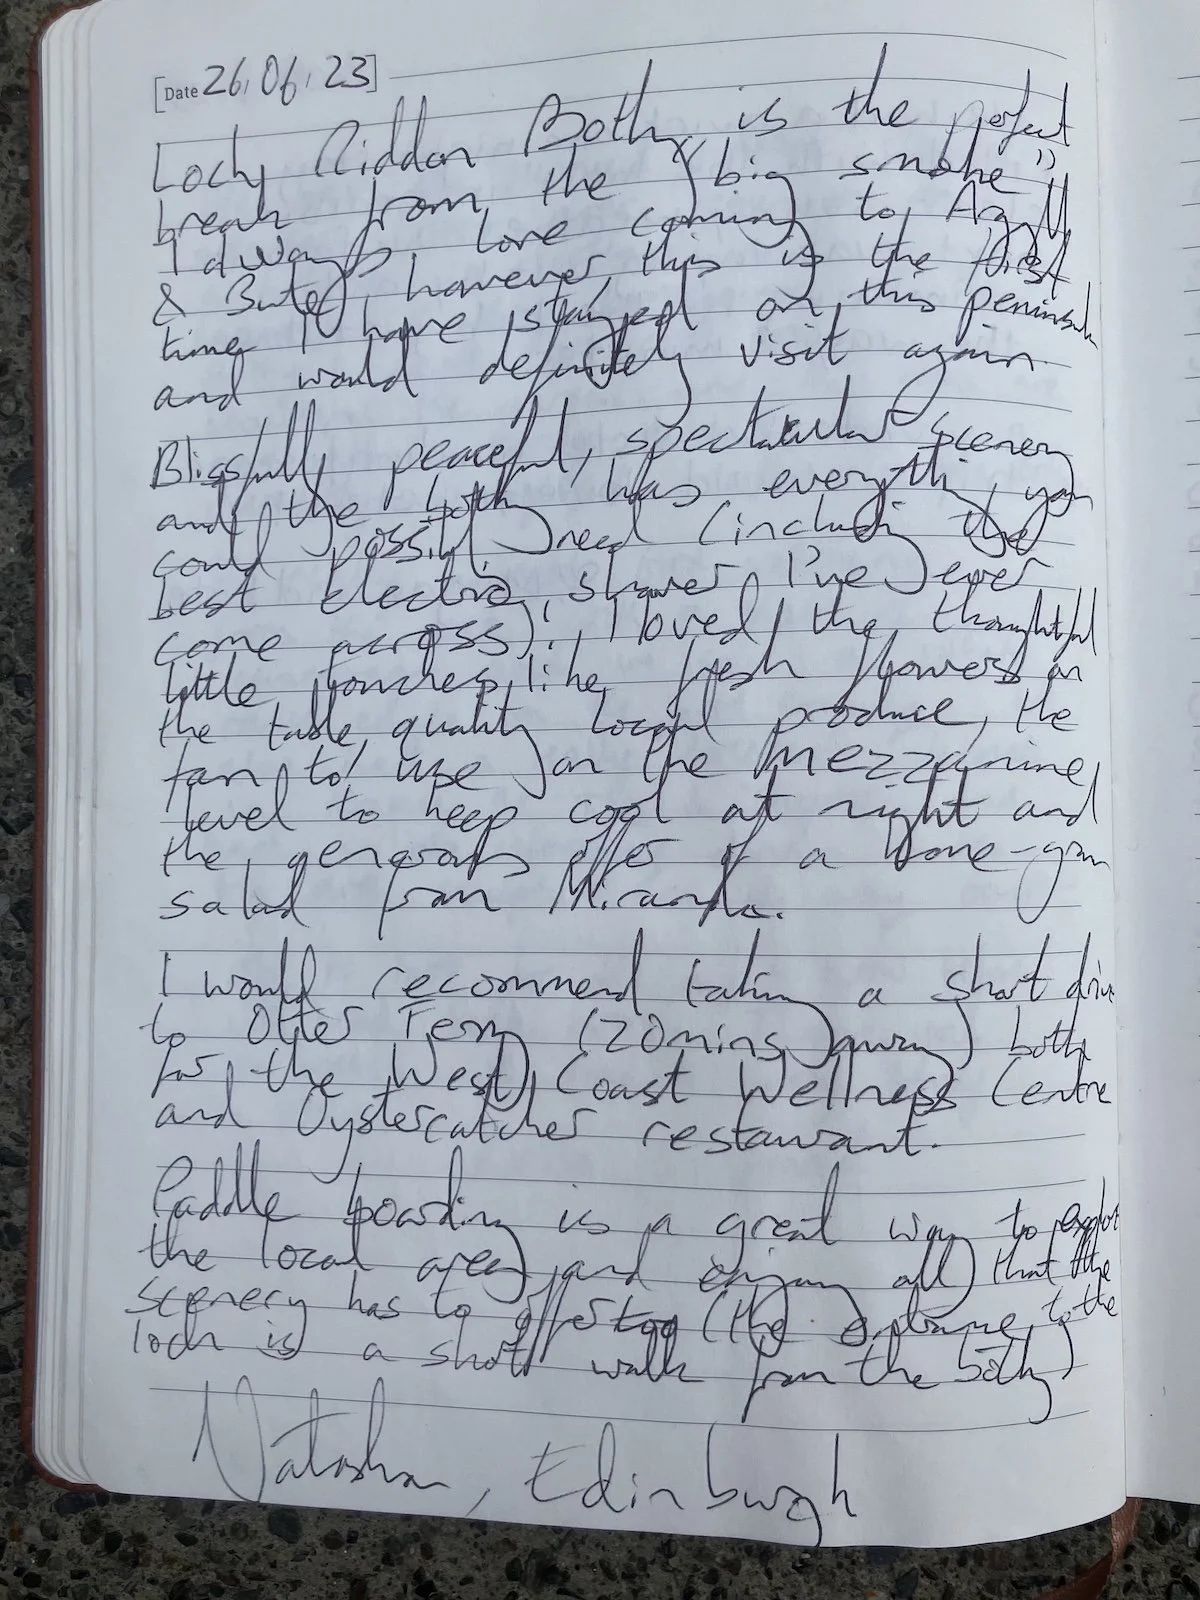 [Date 26.06.23]
Loch Riddon Bothy is the perfect
break from the "big smoke"
I always love coming to Argyll
& Bute, however, this is the first
time I have stayed on this peninsula
and would definitely visit again.
Blissfully peaceful, spectacular scenery
and the bothy has everything you
could possibly need (including the
best electric shower I've ever
come across)! I loved the thoughtful
little touches like fresh flowers on
the table, quality local produce, the
fan to use on the mezzanine
level to keep cool at night and
the generous offer of a home-grown
salad from Miranda.
I would recommend taking a short drive
to Otter Ferry (20mins away) both
for the West Coast Wellness Centre
and Oystercatcher restaurant.
Paddle boarding is a great way to explore
the local area and enjoy all that the
scenery has to offer too (the entrance to the
loch is a short walk from the bothy)
Natasha, Edinburgh